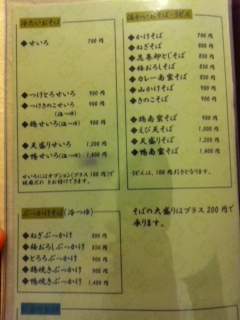 冷たいおそば
◆せいろ 700円
◆つけとろせいろ 900円
◆つけきのこせいろ(温つゆ) 900円
◆鶏せいろ(温つゆ) 900円
◆天盛りせいろ 1,200円
◆鴨せいろ(温つゆ) 1,400円
せいろにはオプション(プラス100円)で
胡麻だれ お付けできます。
温かいおそば・うどん
◆かけそば 700円
◆ねぎそば 800円
◆昆布卵とじそば
◆梅おろしそば
◆カレー南蛮そば
◆山かけそば 900円
◆きのこそば 900円
◆鶏南蛮そば
◆えび天そば
◆天盛りそば 1,200円
◆鴨南蛮そば 1,400円
うどんは、100円引きとなります。
ぶっかけそば(冷つゆ)
◆ねぎぶっかけ 800円
◆梅おろしぶっかけ
◆とろろぶっかけ 900円
◆鶏焼きぶっかけ 900円
◆鴨焼きぶっかけ 1,400円
そばの大盛りはプラス200円で
承ります。